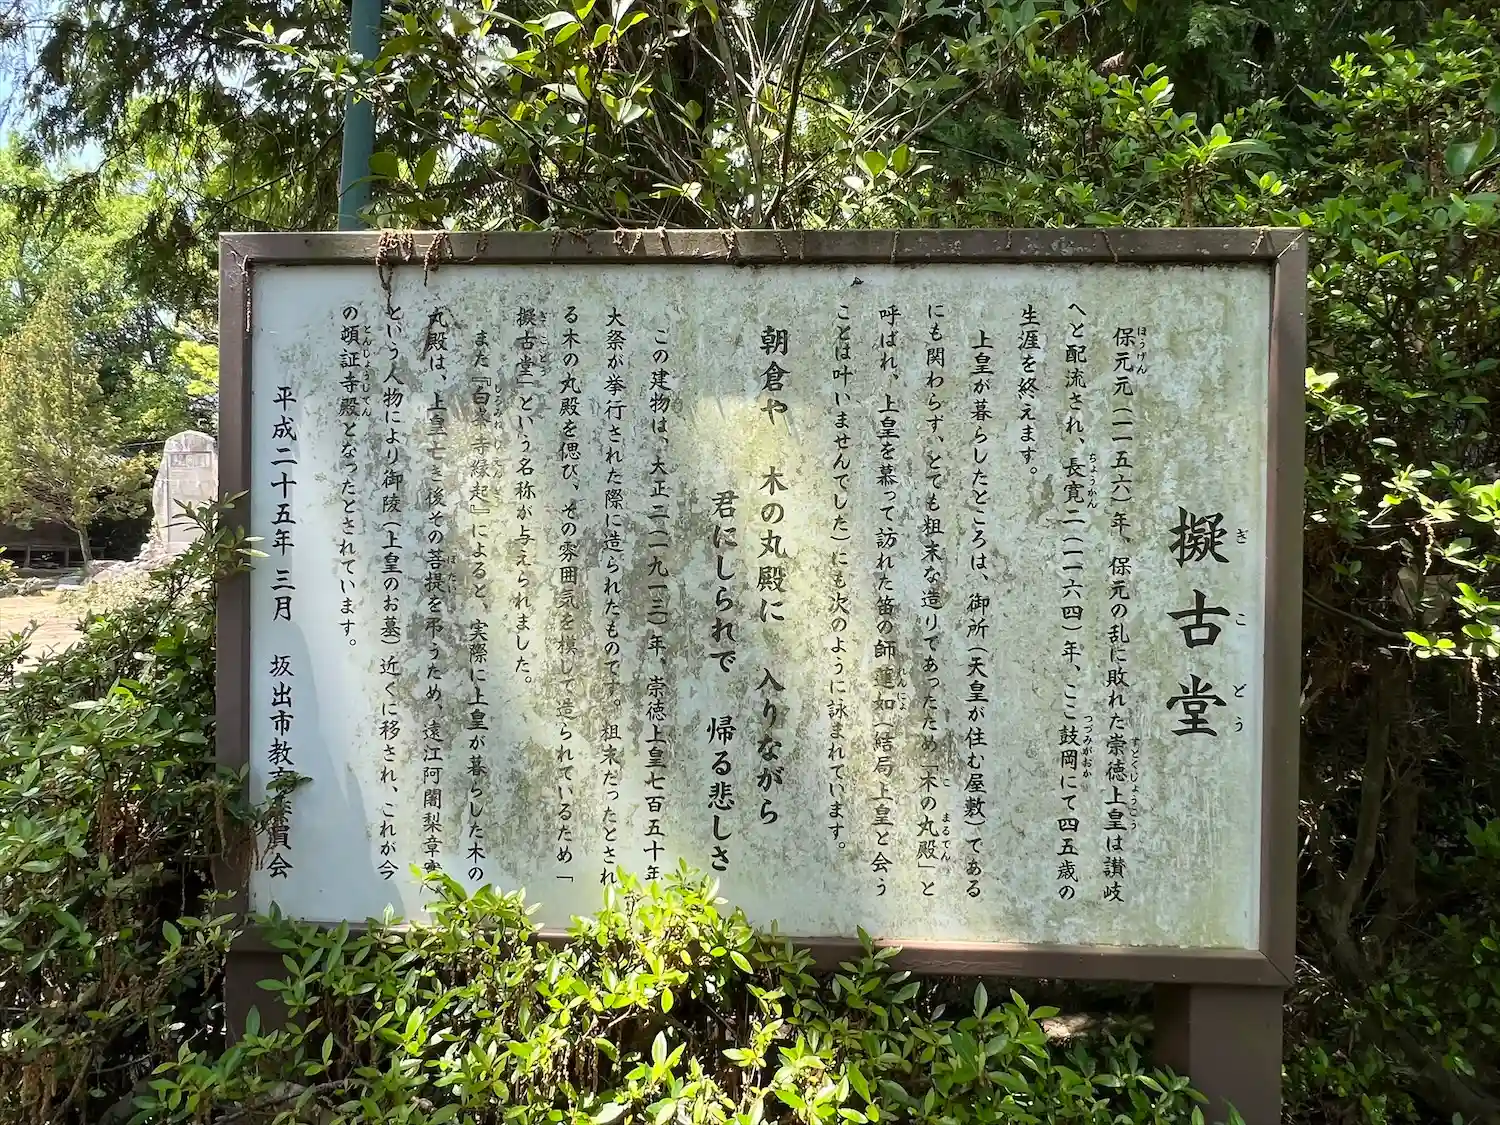 擬古堂
ぎこどう
保元元(一一五六)年、保元の乱に敗れた崇徳上皇は讃岐
ほうげん
すとくじょうこう
へと配流され、長寛二(一一六四)年、ここ鼓岡にて四五歳の
ちょうかん
つづみがおか
生涯を終えます。
上皇が暮らしたところは、御所(天皇が住む屋敷)である
にも関わらず、とても粗末な造りであったため「木の丸殿」と
こ
まるでん
呼ばれ、上皇を慕って訪れた笛の師 蓮如(結局上皇と会う
れんにょ
ことは叶いませんでした)にも次のように詠まれています。
朝倉や 木の丸殿に 入りながら
君にしられで 帰る悲しさ
この建物は、大正二(一九一三)年、崇徳上皇七百五十年
大祭が挙行された際に造られたものです。粗末だったとされ
る木の丸殿を偲び、その雰囲気を模して造られているため「
擬古堂」という名称が与えられました。
ぎこどう
また『白峯寺縁起』によると、実際に上皇が暮らした木の
しろみねじえんぎ
丸殿は、上皇亡き後その菩提を弔うため、遠江阿闍梨章実
ぼだい
という人物により御陵(上皇のお墓)近くに移され、これが今
の頓証寺殿となったとされています。
とんしょうじでん
平成二十五年 三月 坂出市教育委員会